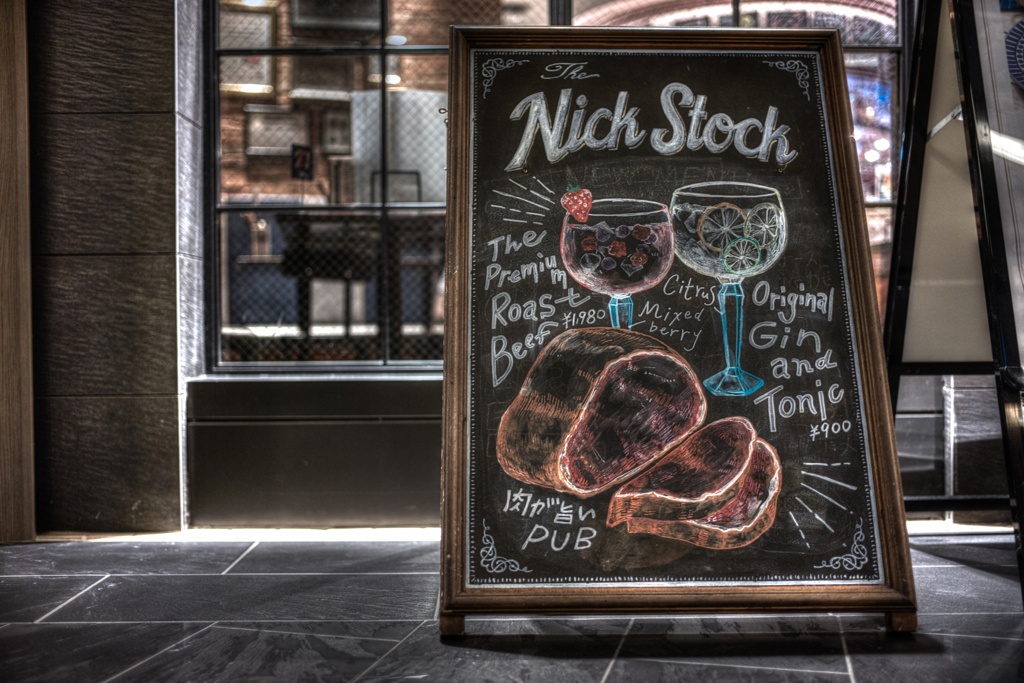 The
Nick Stock
The
Premium
Roast
Beef
¥1980
Citrus
Mixed
berry
Original
Gin
and
Tonic
¥900
肉が旨い
PUB